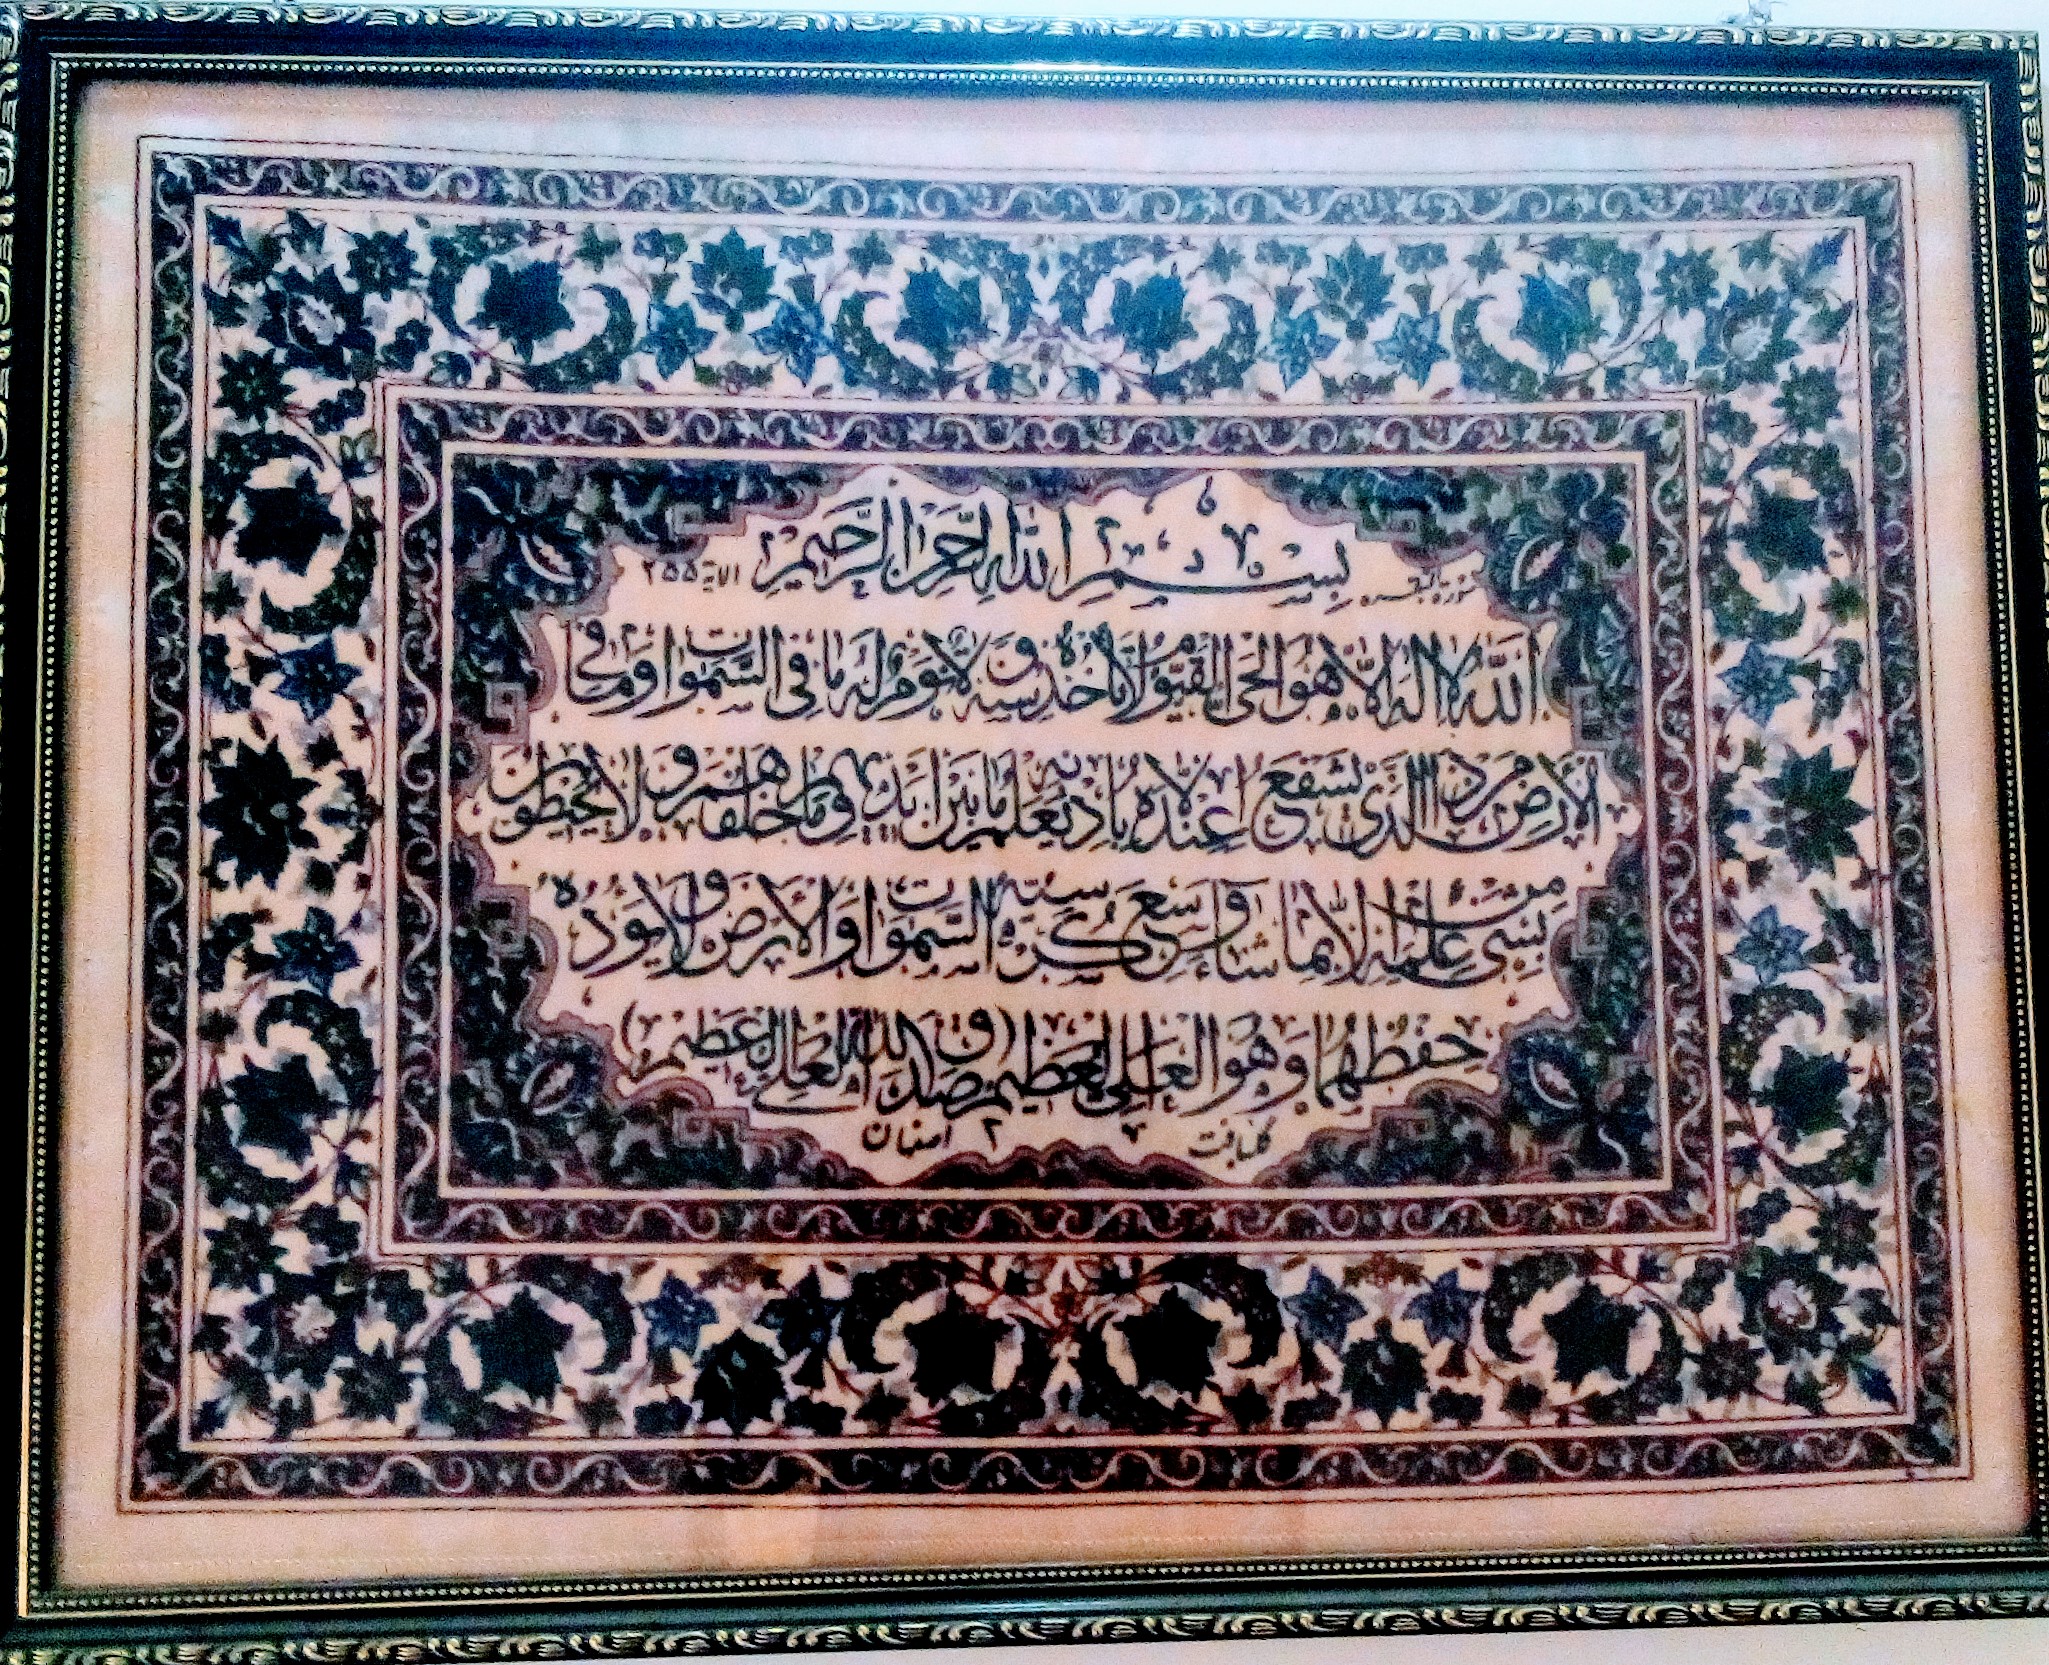 سورة البقره بسم الله الرحمن الرحيم الاية ٢٥٥
الله لا اله الا هو الحي القيوم لا تاخذه سنة ولا نوم له ما في السموات وما في
الارض من ذا الذي يشفع عنده الا باذنه يعلم ما بين ايديهم وما خلفهم ولا يحيطون
بشيء من علمه الا بما شاء وسع كرسيه السموات والارض ولا يؤده
حفظهما وهو العلي العظيم (صدق الله العلي العظيم)
گلبافت امنان